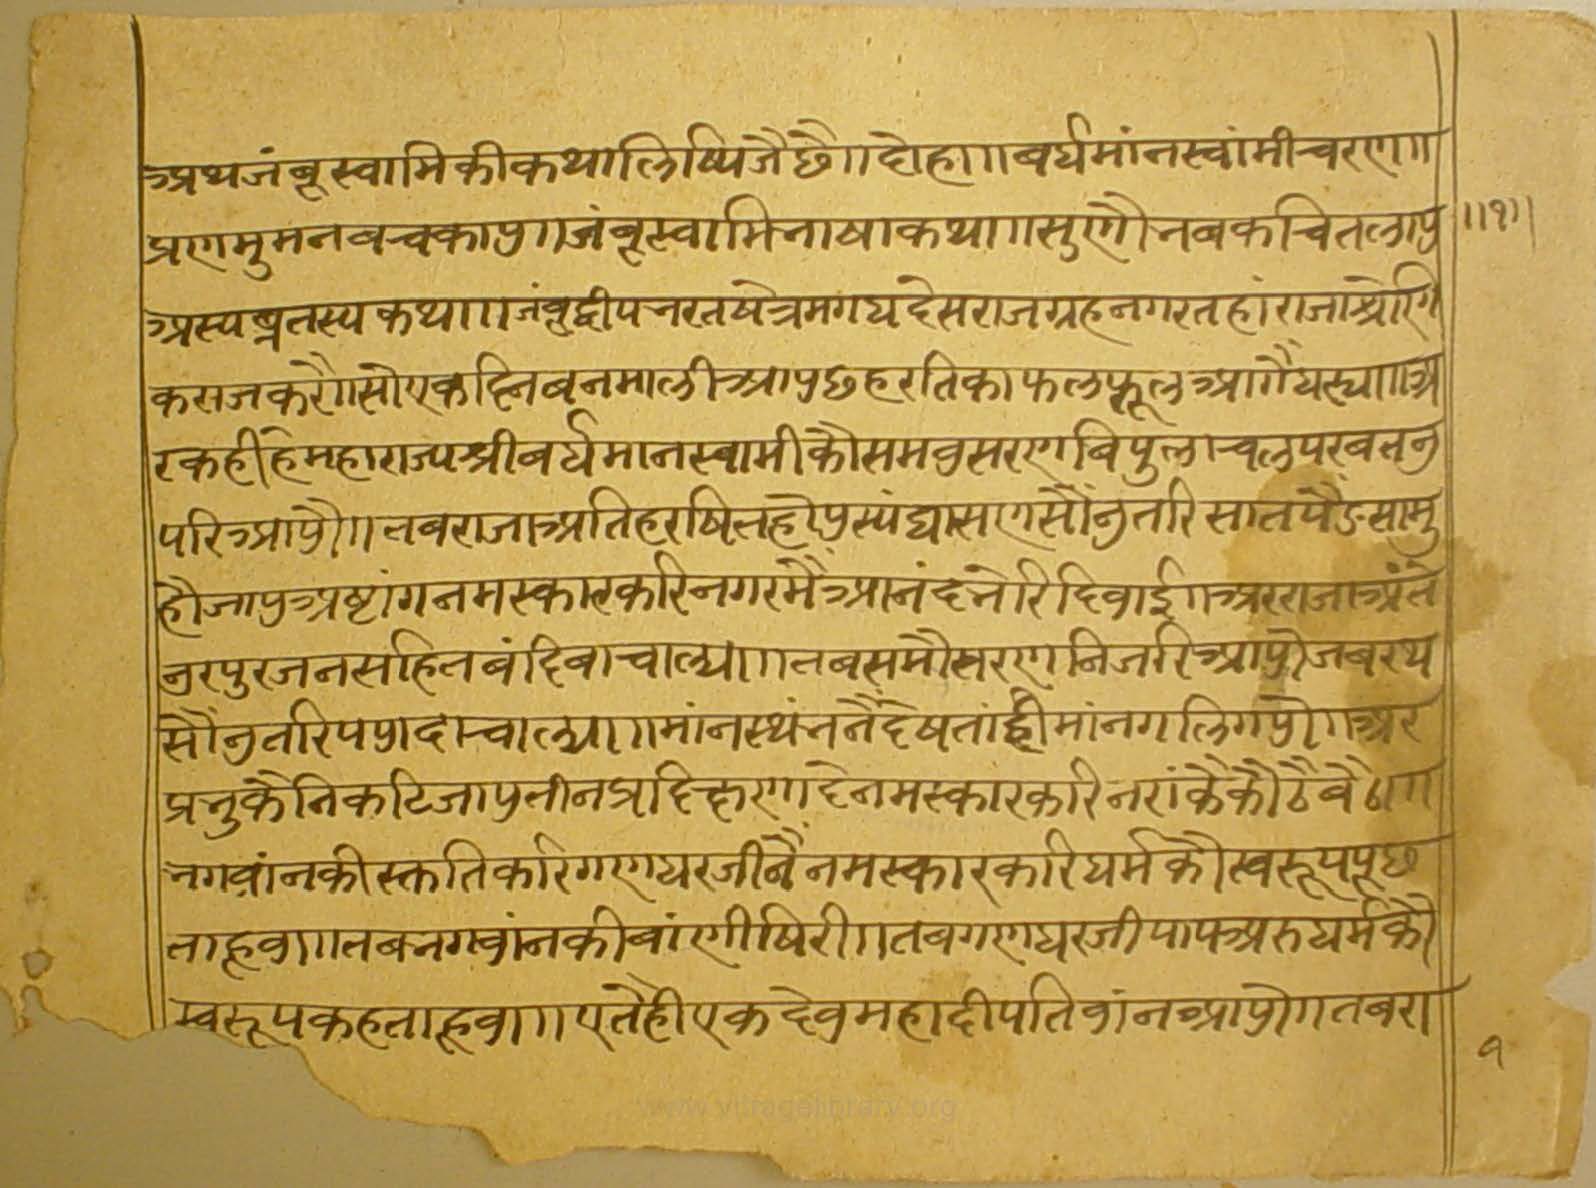 अथ जंबूस्वामि की कथा लिष्यिजै छै॥ दोहा॥ बर्धमांन स्वांमी चरण॥
प्रणमु मन बच काय॥ जंबूस्वामि भाषा कथा॥ सुणौ भबक चित लाय ॥१॥
अस्य ब्रतस्य कथा॥ जंबूद्वीप भरतषेत्र मगध देस राजग्रह नगर तहां राजा श्रेणि
क राज करै॥ सो एक दिन बनमाली आय छह रति का फल फूल आगैं धस्या॥ अ
र कही हे महाराज्य श्री बर्धमान स्वामी कौ समवसरण बिपुलाचल परबत उ
परि आयौ॥ तब राजा अति हरषित होय स्यंघासण सौं उतरि सात पैंड सामु
हौ जाय अष्टांग नमस्कार करि नगर मैं आनंद भेरि दिवाई॥ अर राजा अंते
उर पुरजन सहित बंदिबा चाल्या॥ तब समौसरण निजरि आयौ जब रथ
सौं उतरि पयादा चाल्या॥ मांनस्थंभ नैं देषतां ही मांन गलि गयौ॥ अर
प्रभु कै निकटि जाय तीन प्रदिक्षणा दे नमस्कार करि नरां कै कौठै बैठा॥
भगवांन की स्तुति करि गणधरजी नैं नमस्कार करि धर्म कौ स्वरूप पूछ
ता हूवा॥ तब भगवांन की बांणी षिरी॥ तब गणधरजी पाप अरु धर्म कौ
स्वरूप कहता हूवा॥ एतै ही एक देव महा दीपतिवांन आयौ॥ तब रा
१